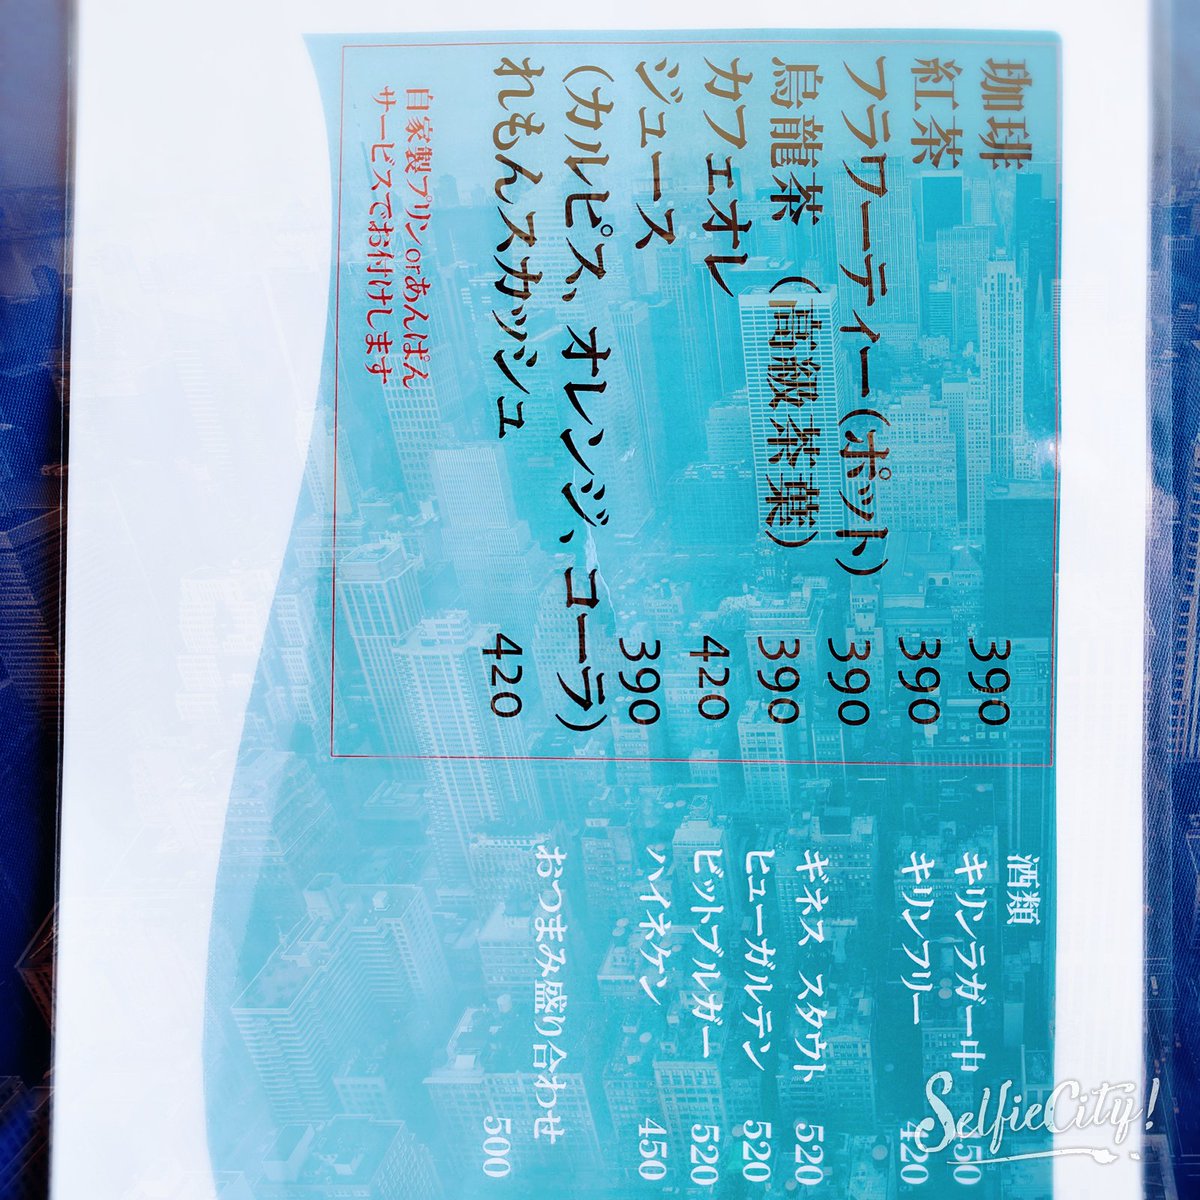 珈琲 390
紅茶 390
フラワーティー(ポット) 390
烏龍茶 (高級茶葉) 390
カフェオレ 420
ジュース 390
(カルピス、オレンジ、コーラ)
れもんスカッシュ 420
自家製プリンorあんぱん
サービスでお付けします
酒類
キリンラガー中
キリンフリー 420
ギネス スタウト 520
ヒューガルテン 520
ビットブルガー 520
ハイネケン 450
おつまみ盛り合わせ 500
SelfieCity!